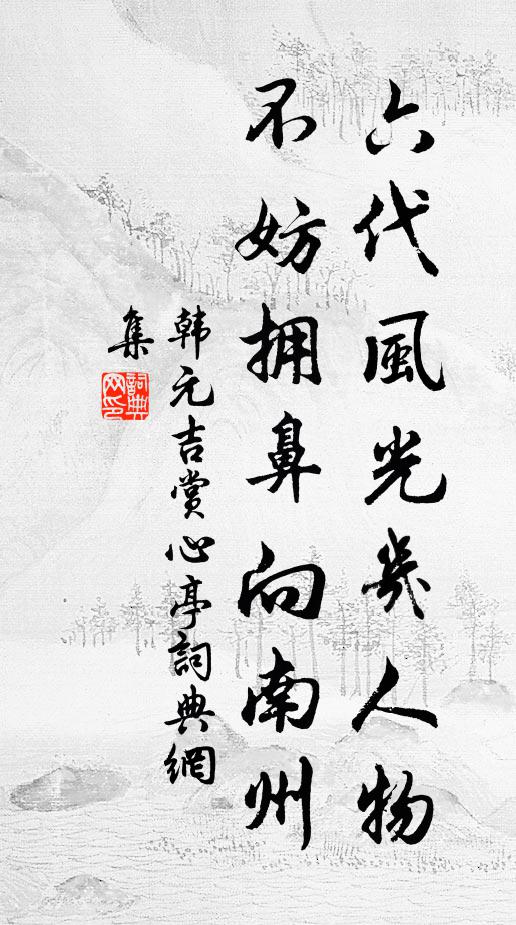 六代風光幾人物
不妨拥鼻向南州
韩元吉赏心亭詞典網
集
詞典网印